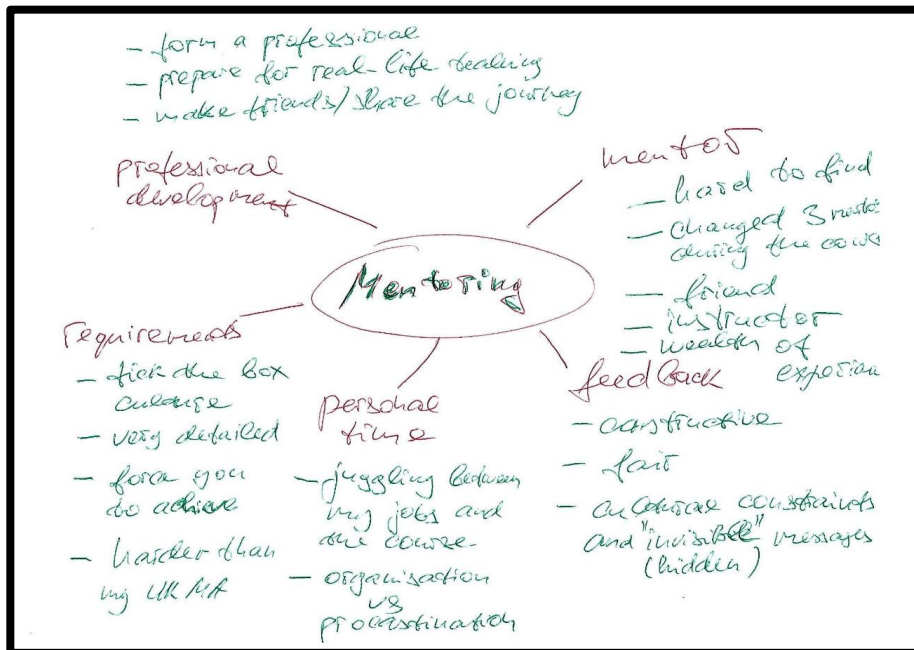 - form a professional
- prepare for real-life teaching
- make friends/share the journey
professional
development
mentor
- hard to find
- changed 3
during the
- friend
- instructor
- wealth of
Mentoring
requirements
- tick the box
culture
- very detailed
- force you
to achieve
- harder than
my UK MA
personal
time
- juggling between
my jobs and
the course
- organisation
vs
procastination
feedback
- constructive
- fair
- cultural constraints
and "invisible" messages
(hidden)